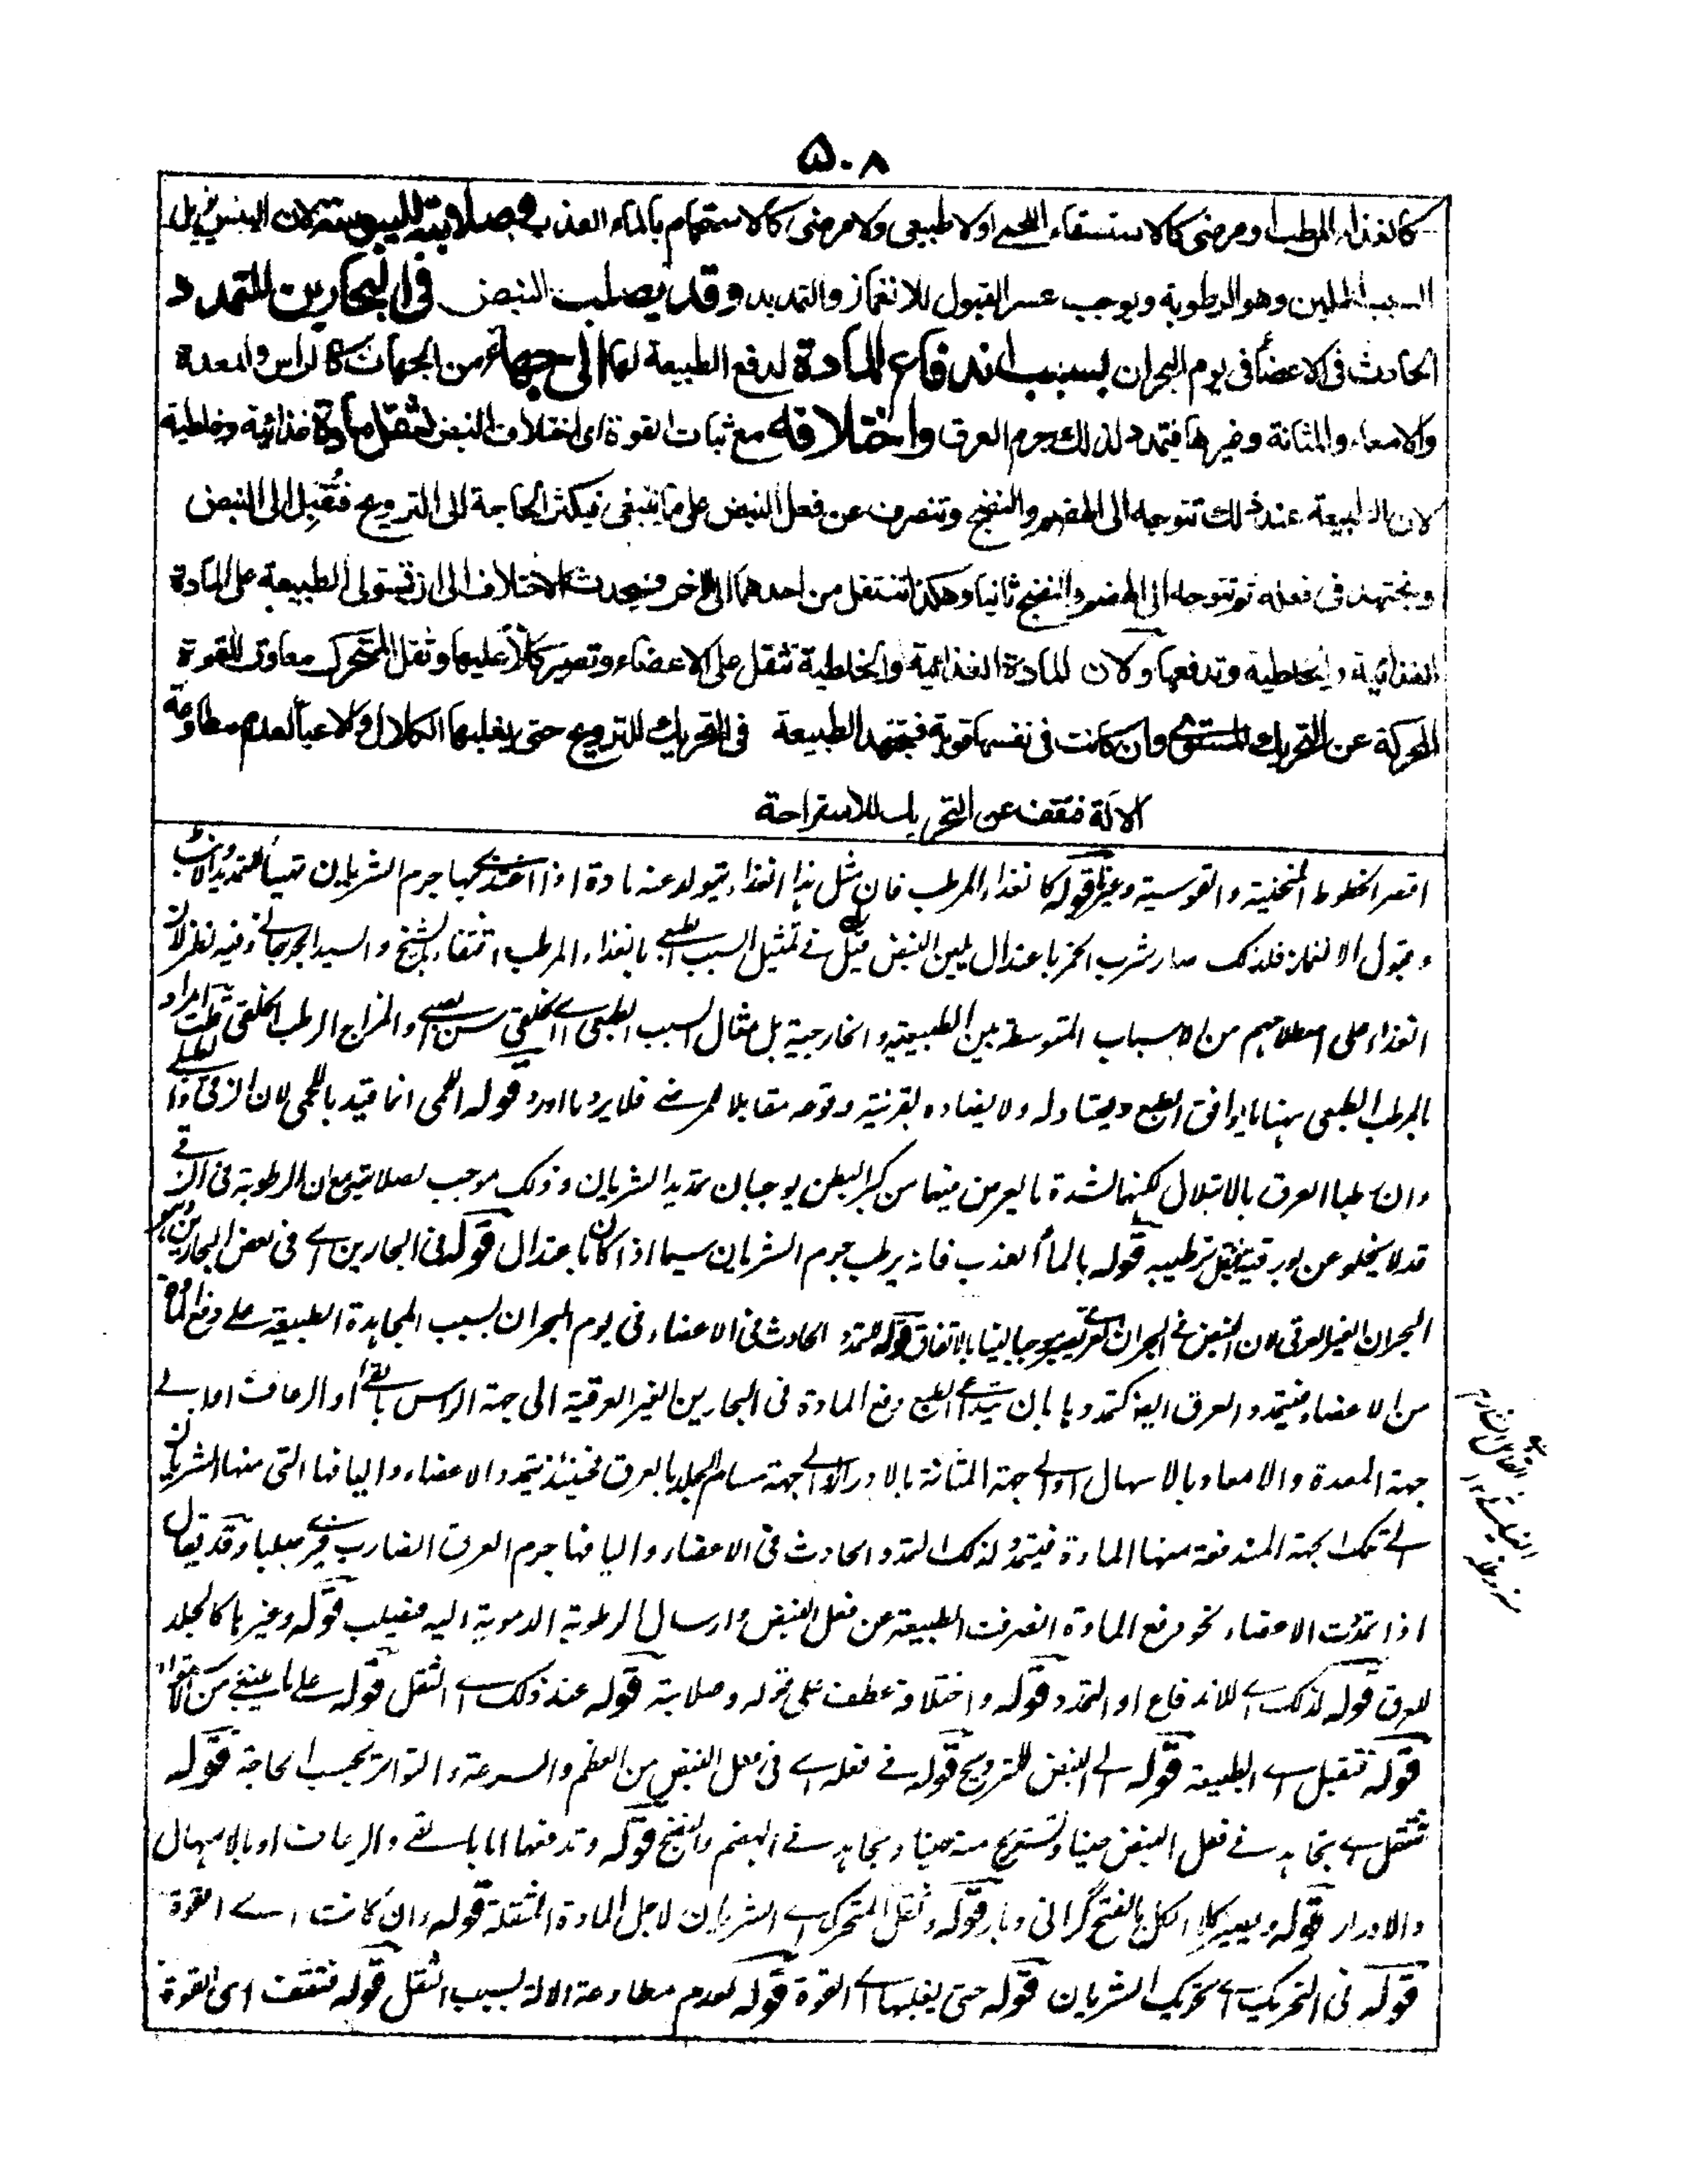 ۵۰۸
كالغذاء المرطب او مرضى كالاستسقاء اللحمى او لا طبيعى ولا مرضى كالاستحمام بالماء العذب وصلابته لليبوسة لان اليبس يزيل
السبب الملين وهو الرطوبة ويوجب عسر القبول للانغماز والتمديد وقد يصلب النبض فى البحارين للتمدد
الحادث فى الاعضاء فى يوم البحران بسبب اندفاع المادة لدفع الطبيعة لها الى جهة من الجهات كالراس والمعدة
والامعاء والمثانة وغيرها فيتمدد لذلك جرم العرق واختلافه مع ثبات القوة اى اختلاف النبض لثقل مادة غذائية وخلطية
لان الطبيعة عند ذلك تتوجه الى الهضم والنضج وتنصرف عن فعل النبض على ما ينبغى فيكثر الحاجة الى الترويح فتقبل الى النبض
ويجتهد فى فعله ثم تتوجه الى الهضم والنضج ثانيا وهكذا تنتقل من احدهما الى الاخر فيحدث الاختلاف الى ان تستولى الطبيعة على المادة
الغذائية والخلطية وتدفعها ولان المادة الغذائية والخلطية تثقل على الاعضاء وتصير كلا عليها وثقل المتحرك معاوق للقوة
المحركة عن التحريك المستوى وان كانت فى نفسها قوية فيجتهد الطبيعة فى التحريك للترويح حتى يغلبها الكلال والاعياء لعدم مطاوعة
الالة فتقف عن التحريك للاستراحة
اقصر الخطوط المنحنية والقوسية وغيرها قوله كالغذاء المرطب فان مثل هذا الغذاء يتولد عنه مادة اذا اغتذى بها جرم الشريان تهيأ للتمديد
وقبول الانغماز فلذلك صار شرب الخمر باعتدال يلين النبض قيل فى تمثيل السبب الطبيعى بالغذاء المرطب اقتفاء الشيخ والسيد الجرجانى وفيه نظر لان
الغذاء على اصطلاحهم من الاسباب المتوسطة بين الطبيعية والخارجية بل مثال السبب الطبيعى اى الخلقى سن الصبى والمزاج الرطب الخلقى قلت المراد
بالمرطب الطبيعى ههنا ما يوافق الطبع ويعتاد له ولا يضاده بقرينة وقوعه مقابلا للمرضى فلا يرد ما اورد قوله اللحمى انما قيد باللحمى لان الزقى والطبلى
وان رطبا العرق بالابتلال لكنهما لشدة ما يعرض منهما من كبر البطن يوجبان تمديد الشريان وذلك موجب لصلابته مع ان الرطوبة فى الزقى
قد لا يخلو عن بورقية فيقل ترطيبه قوله بالماء العذب فانه يرطب جرم الشريان سيما اذا كان باعتدال قوله فى البحارين اى فى بعض البحارين وهو
البحران الغير العرقى لان النبض فى البحران العرقى يصير موجيا لينا بالاتفاق قوله للتمدد الحادث فى الاعضاء فى يوم البحران بسبب المجاهدة الطبيعة على دفع المادة
من الاعضاء فيتمدد العرق ايضا كتمددها بان يتدعى الطبع دفع المادة فى البحارين الغير العرقية الى جهة الراس بالقئ او الرعاف او الى
جهة المعدة والامعاء وبالاسهال او الى جهة المثانة بالادرار او الى جهة مسام الجلد بالعرق فحينئذ يتمدد الاعضاء واليافها التى منها الشريان
الى تلك الجهة المندفعة منها المادة فيتمدد لذلك التمدد الحادث فى الاعضاء واليافها جرم العرق الضارب فيرى صلبا وقد يقال
اذا تمددت الاعضاء نحو دفع المادة انصرفت الطبيعة عن فعل النبض وارسال الرطوبة الدموية اليه فيصلب قوله وغيرها كالجلد
للعرق قوله لذلك اى للاندفاع او التمدد قوله واختلافه عطف على قوله وصلابته قوله عند ذلك اى الثقل قوله على ما ينبغى من
قوله فتقبل اى الطبيعة قوله الى النبض للترويح قوله فى فعله اى فى فعل النبض من العظم والسرعة والتواتر بحسب الحاجة قوله
تنتقل اى تجاهد فى فعل النبض حينا وتستريح منه حينا وتجاهد فى الهضم والنضج قوله وتدفعها اما بالقئ والرعاف او بالاسهال
والادرار قوله ويصير كلا الكل بالفتح گرانى وبار قوله وثقل المتحرك اى الشريان لاجل المادة المثقلة قوله وان كانت اى القوة
قوله فى التحريك اى تحريك الشريان قوله حتى يغلبها اى القوة قوله لعدم مطاوعة الالة بسبب الثقل قوله فتقف اى القوة